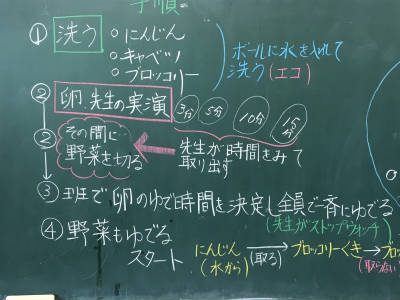 手順
① 洗う ○にんじん
○キャベツ
○ブロッコリー
ボールに水を入れて
洗う(エコ)
② 卵、先生の実演 3分 5分 10分 15分
② その間に…
野菜を切る
先生が時間をみて
取り出す
③ 班で卵のゆで時間を決定し全員で一斉にゆでる
(先生がストップウォッチ)
④ 野菜もゆでる
スタート
にんじん → ブロッコリーくき → ブロ
(水から) (取る) (取らない)